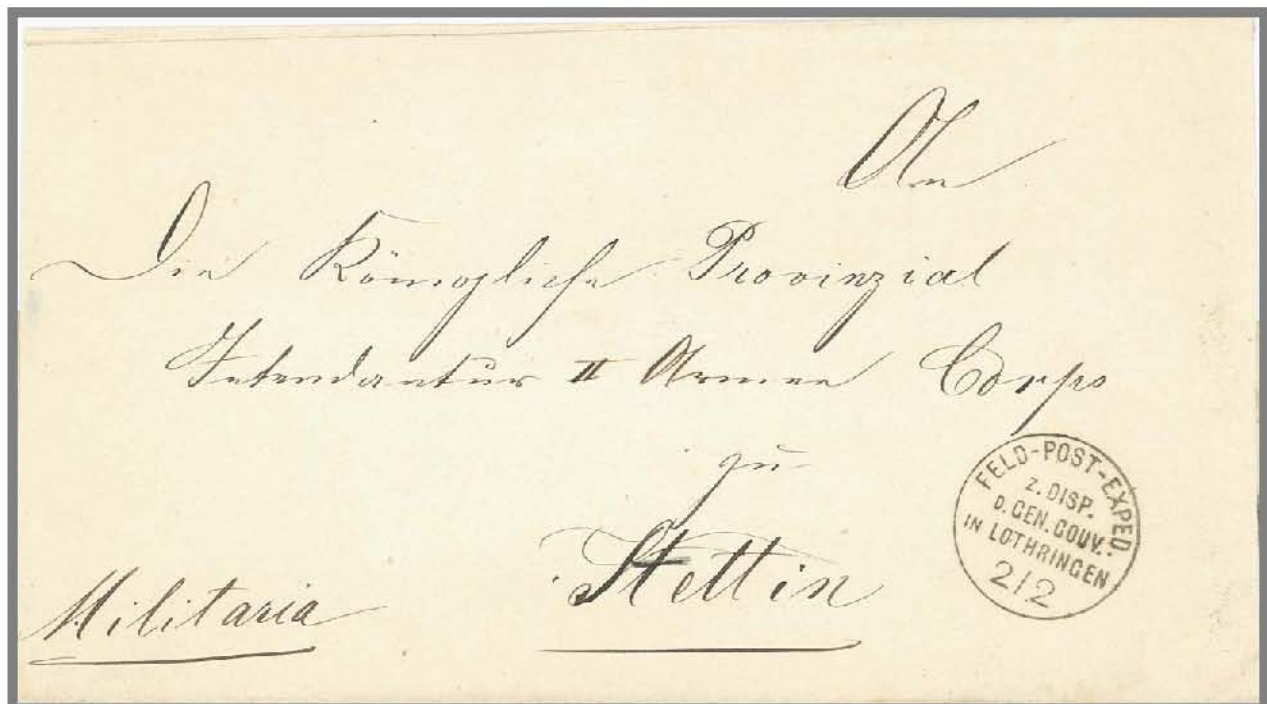 An
Die Königliche Provinzial
Intendantur II Armee Corps
zu
Stettin
Militaria
FELD-POST-EXPED.
Z. DISP.
D. GEN. GOUV.
IN LOTHRINGEN
2/2